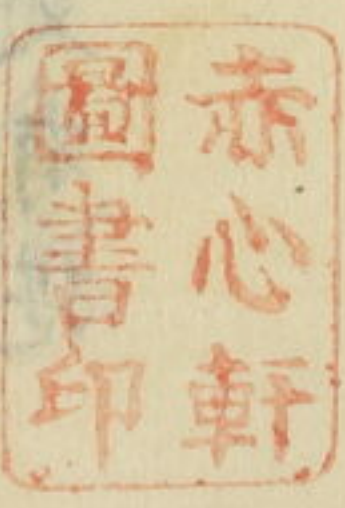 赤心軒
圖書印